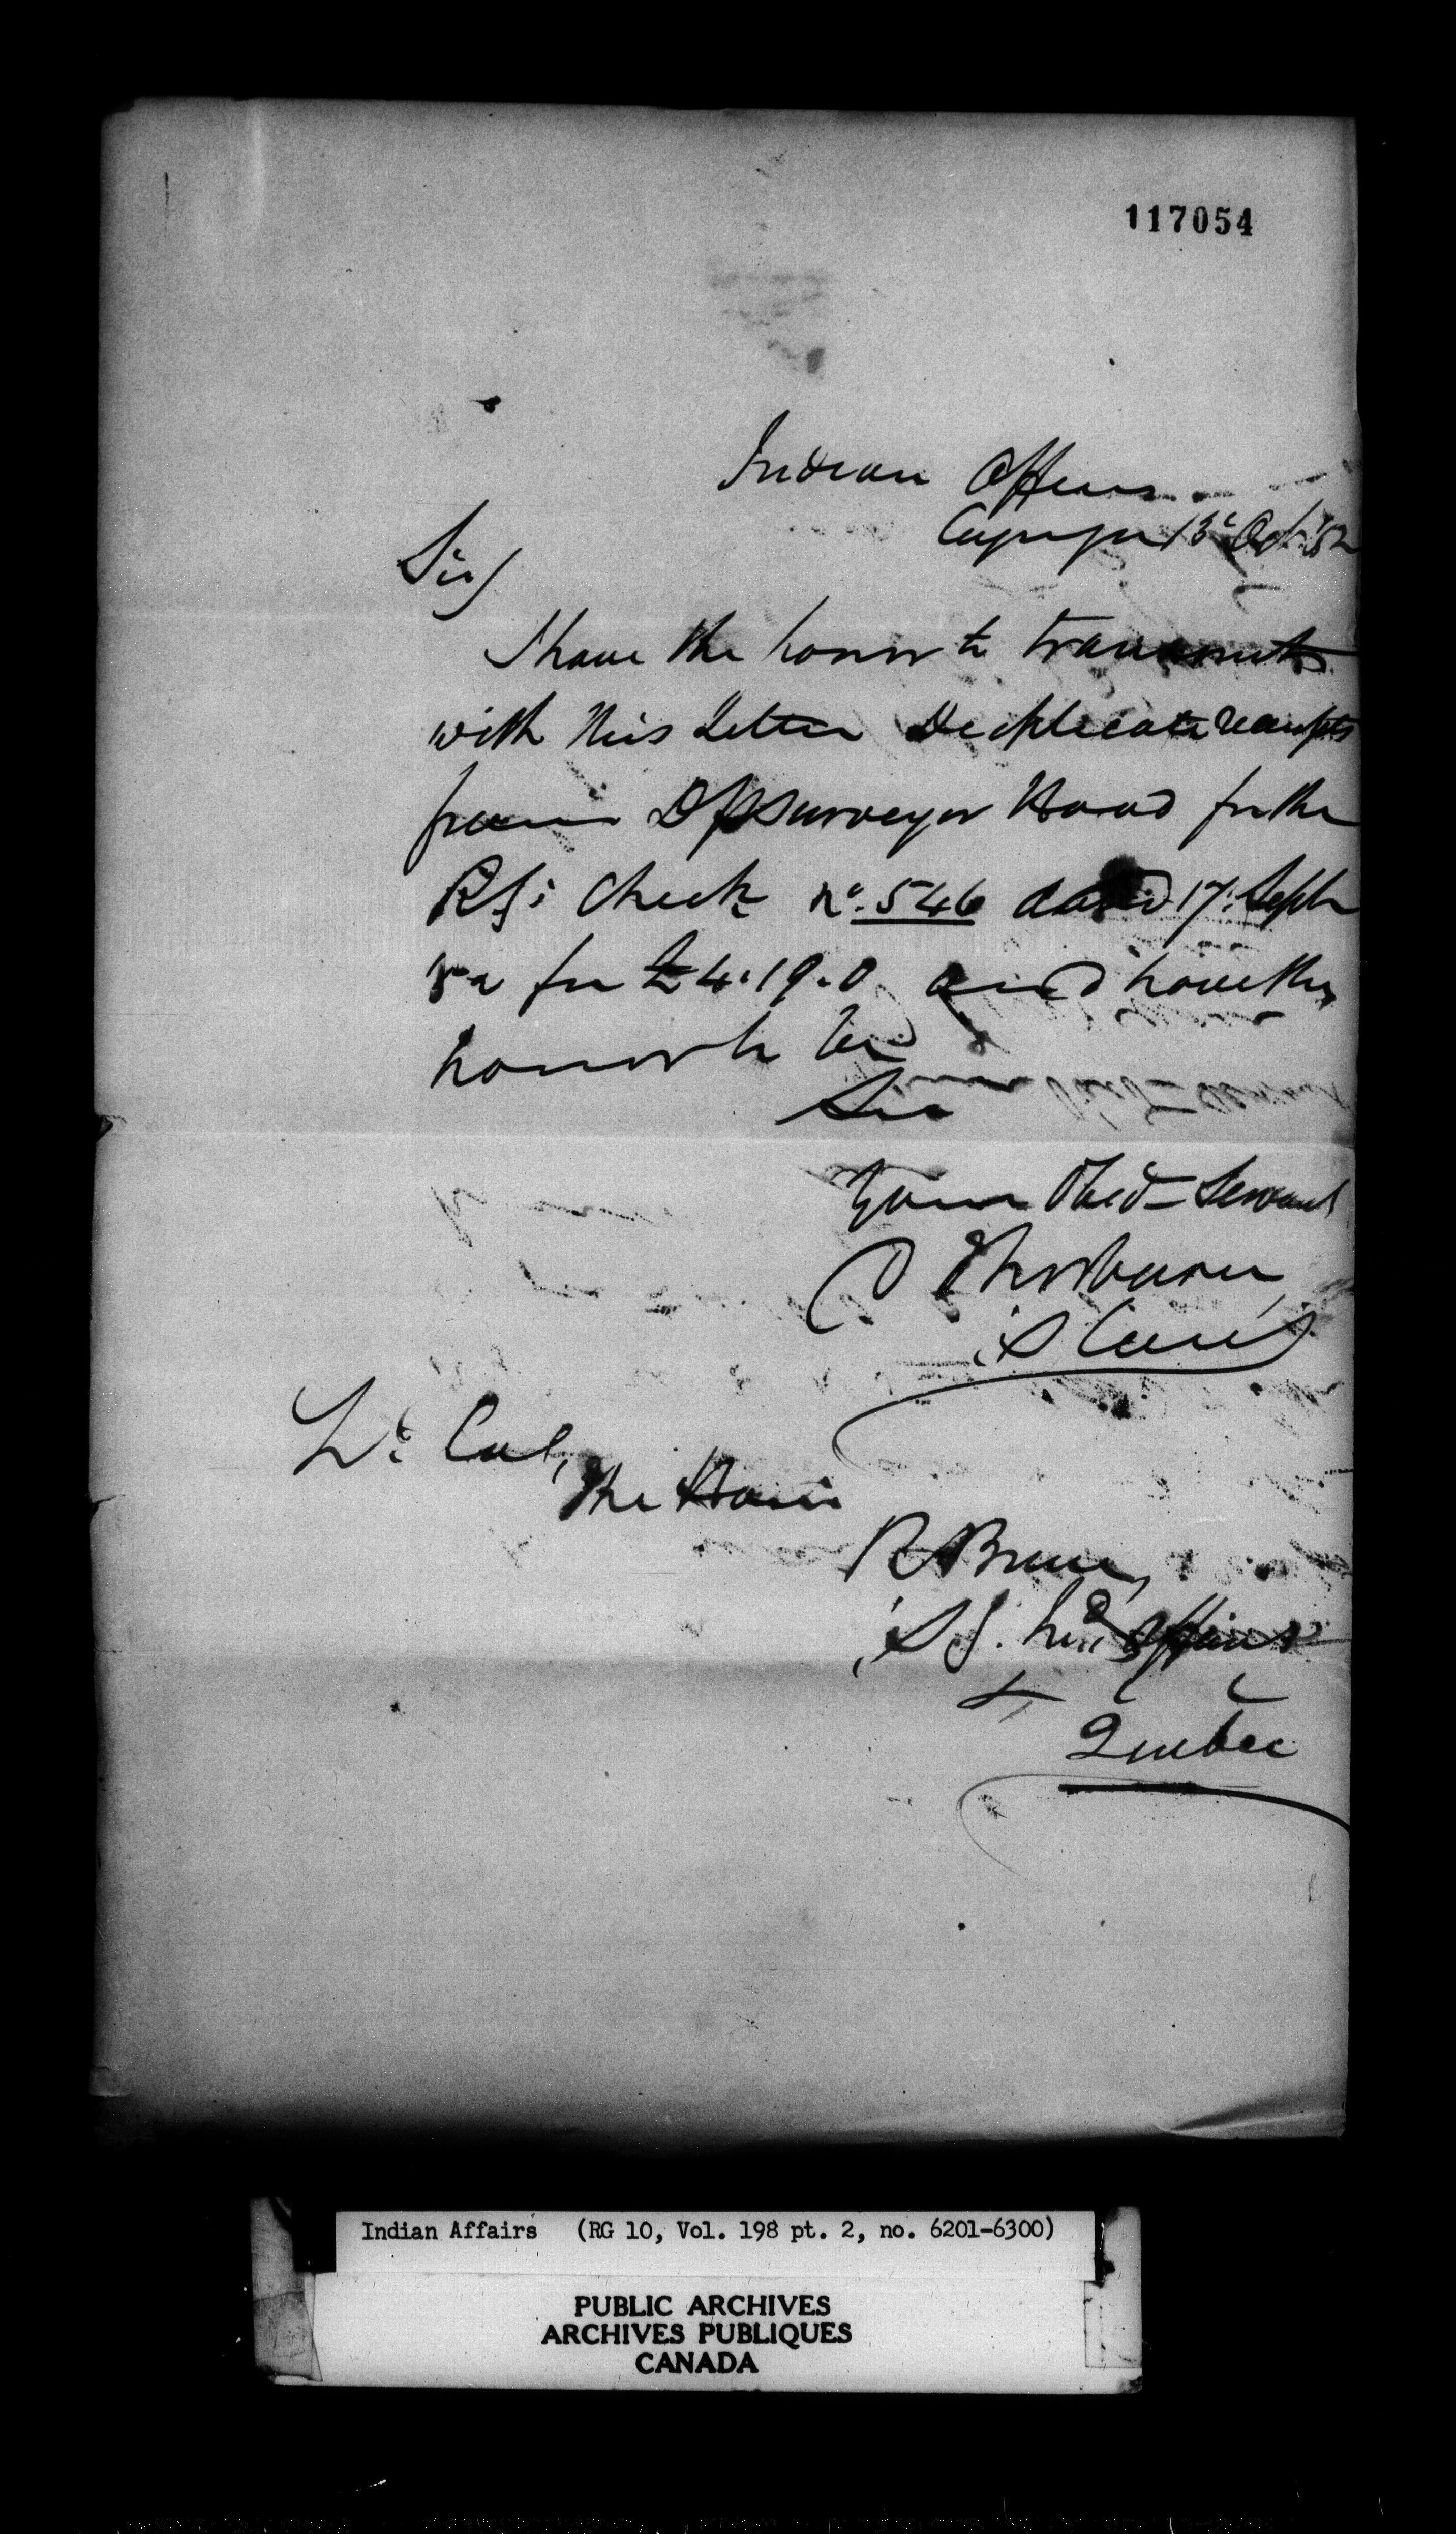 117054
Indian Office
Cayuga 13 Oct '52
Sir/
I have the honor to transmit
with this Letter Duplicate receipts
from Dp Surveyor Hood for the
Check No. 546 dated 17 Septr
52 for £4.19.0 and have the
honor to be
Sir
Your Obed Servant
D Thorburn
Lt Col,
The Hon
R Bruce,
S G. Ind Affairs
Quebec
Indian Affairs (RG 10, Vol. 198 pt. 2, no. 6201-6300)
PUBLIC ARCHIVES
ARCHIVES PUBLIQUES
CANADA